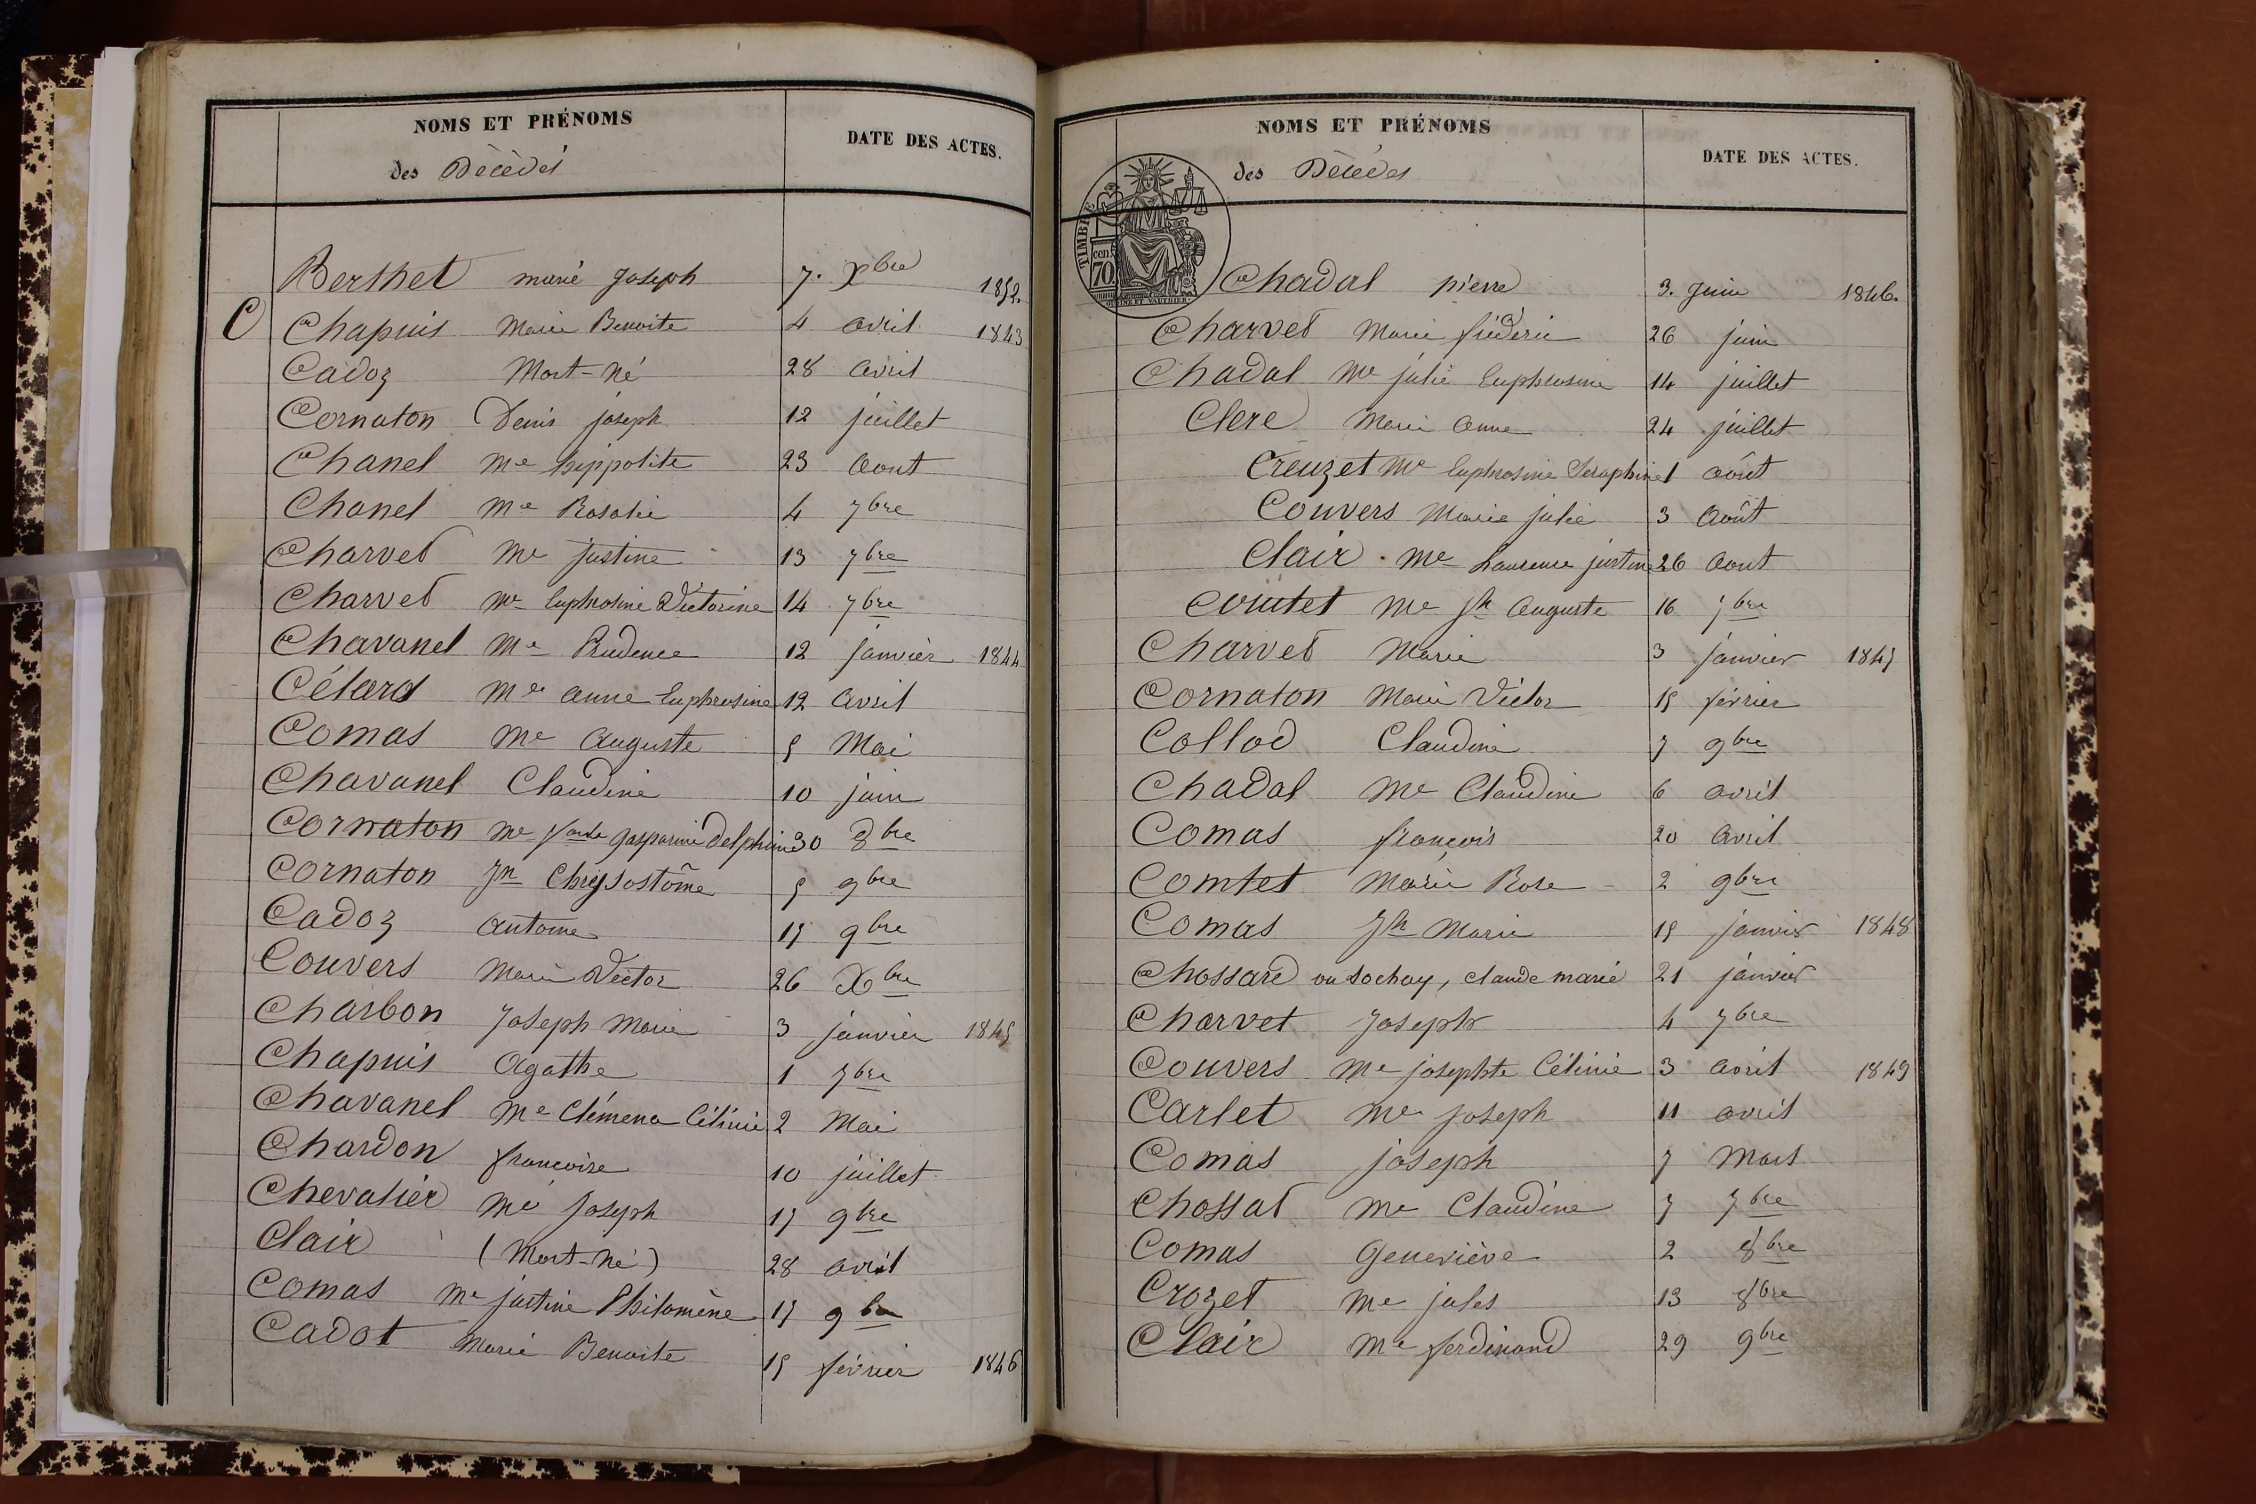 NOMS ET PRÉNOMS
des Décédés
DATE DES ACTES.
Berthet marie Joseph 7. Xbre 1852.
C Chapuis Marie Benoite 4 avril 1843
Cadoz Mort-né 28 avril
Cornaton Denis joseph 12 juillet
Chanel Me hippolite 23 Aout
Chanel Me Rosalie 4 7bre
Charvet Me Justine 13 7bre
Charvet Me Euphrosine Victorine 14 7bre
Chavanel Me Prudence 12 janvier 1844
Célard Me anne Euphrosine 12 avril
Comas Me Auguste 5 Mai
Chavanel Claudine 10 juin
Cornaton Me Gasparine Delphine 30 8bre
Cornaton Jn Chrysostôme 5 9bre
Cadoz antoine 15 9bre
Couvers Marie Victor 26 Xbre
Charbon Joseph Marie 3 janvier 1845
Chapuis Agathe 1 7bre
Chavanel Me Clémence Célinie 2 Mai
Chardon francoise 10 juillet
Chevalier Me Joseph 15 9bre
Clair (Mort-né) 28 avril
Comas Me justine Philomène 15 9bre
Cadot Marie Benoite 15 février 1846
NOMS ET PRÉNOMS
des Décédés
DATE DES ACTES.
TIMBRE
70 cent
Chadal pierre 3. Juin 1846.
Charvet Marie fréderic 26 juin
Chadal Me julie Euphrosine 14 juillet
Clere Marie Anne 24 juillet
Creuzet Me Euphrosine Seraphine 1 août
Couvers Marie julie 3 Août
Clair Me Laurence justine 26 Aout
Comtet Me Jh Auguste 16 7bre
Charvet Marie 3 janvier 1847
Cornaton Marie Victor 15 février
Collod Claudine 7 9bre
Chadal Me Claudine 6 avril
Comas françois 20 Avril
Comtet Marie Rose 2 9bre
Comas Jh Marie 15 janvier 1848
Chossard ou Sochay, claude marie 21 janvier
Charvet Joseph 4 7bre
Couvers Me josephte Célinie 3 avril 1849
Carlet Me joseph 11 avril
Comas joseph 7 Mars
Chossat Me Claudine 7 7bre
Comas Geneviève 2 8bre
Crozet Me jules 13 8bre
Clair Me ferdinand 29 9bre